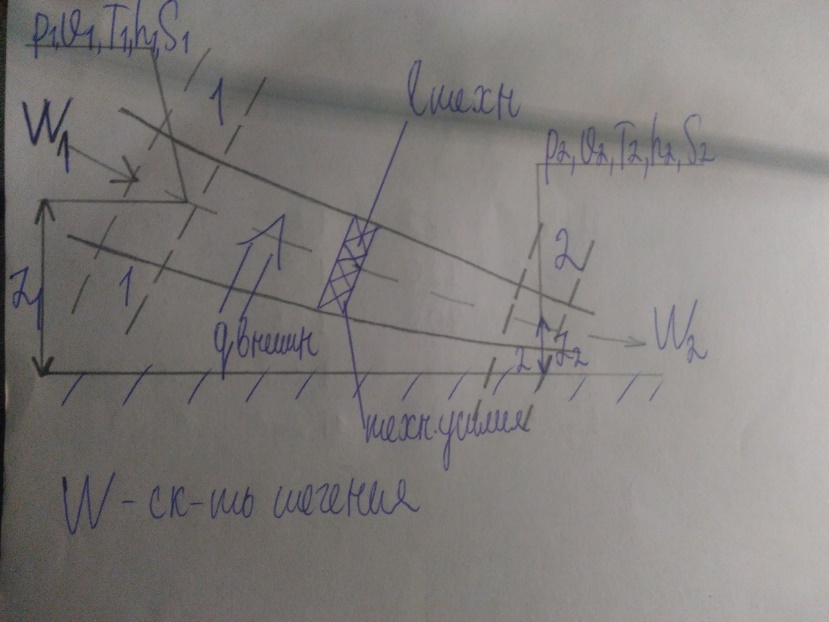 p₁,υ₁,T₁,h₁,S₁
1
lтехн
W₁
p₂,υ₂,T₂,h₂,S₂
2
1
z₁
qвнешн
2
z₂
W₂
техн.усилия
W - ск-ть течения